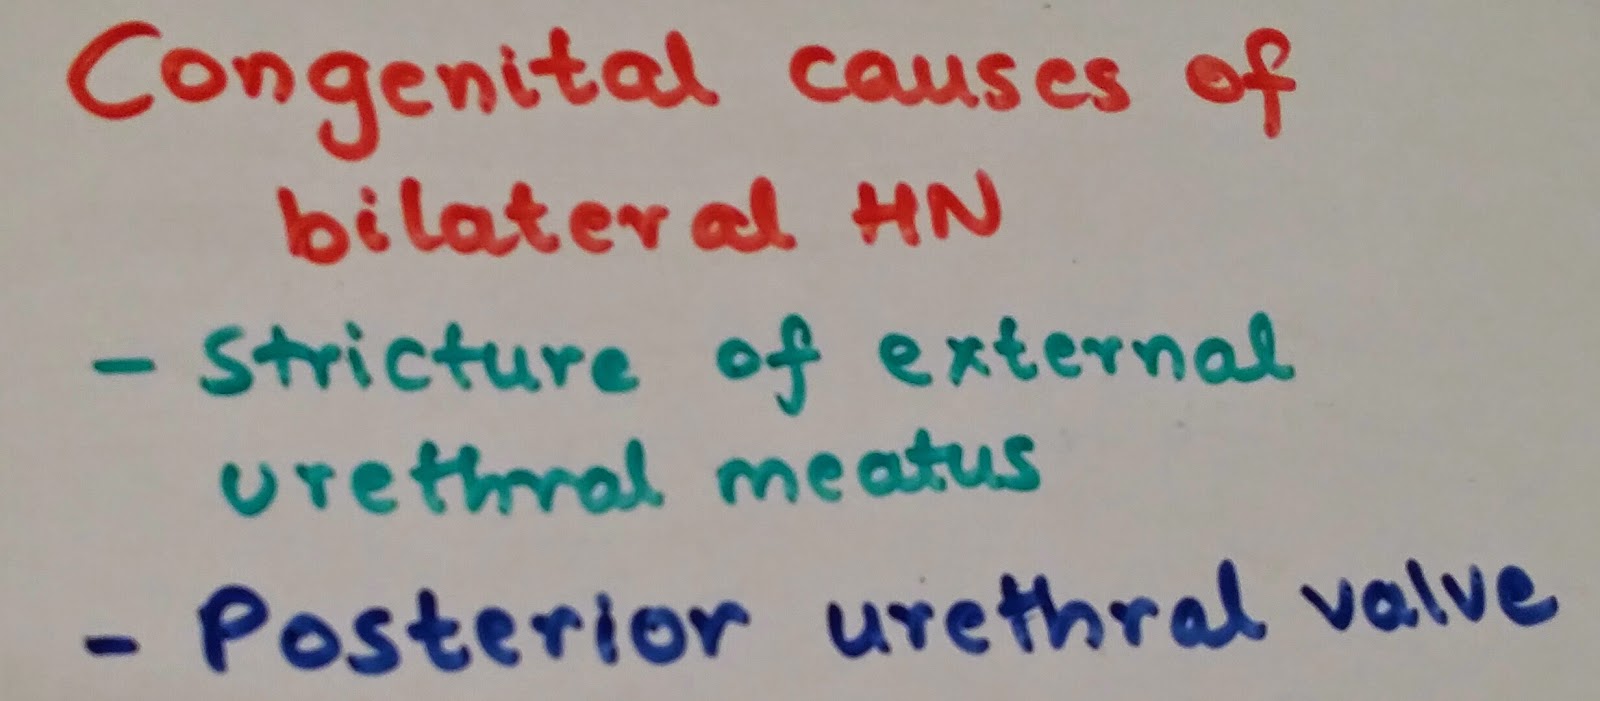 Congenital causes of
bilateral HN
- Stricture of external
urethral meatus
- Posterior urethral valve